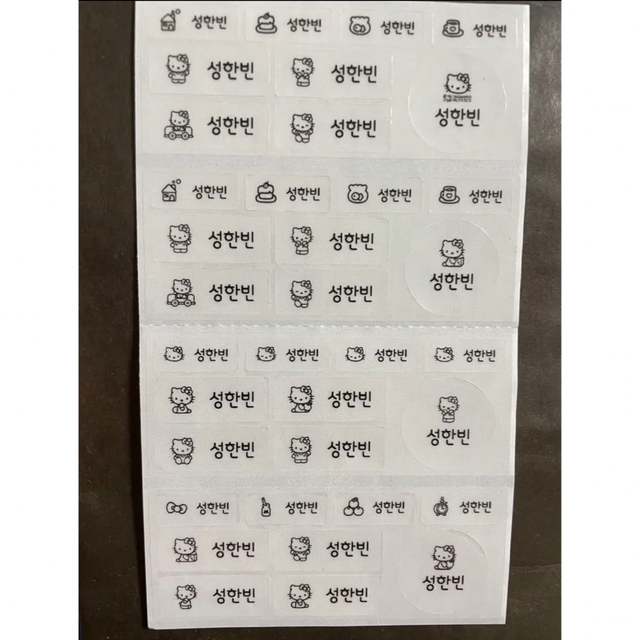 성한빈 성한빈 성한빈 성한빈
성한빈 성한빈
성한빈 성한빈 성한빈
성한빈 성한빈 성한빈 성한빈
성한빈 성한빈
성한빈 성한빈 성한빈
성한빈 성한빈 성한빈 성한빈
성한빈 성한빈
성한빈 성한빈 성한빈
성한빈 성한빈 성한빈 성한빈
성한빈 성한빈
성한빈 성한빈 성한빈